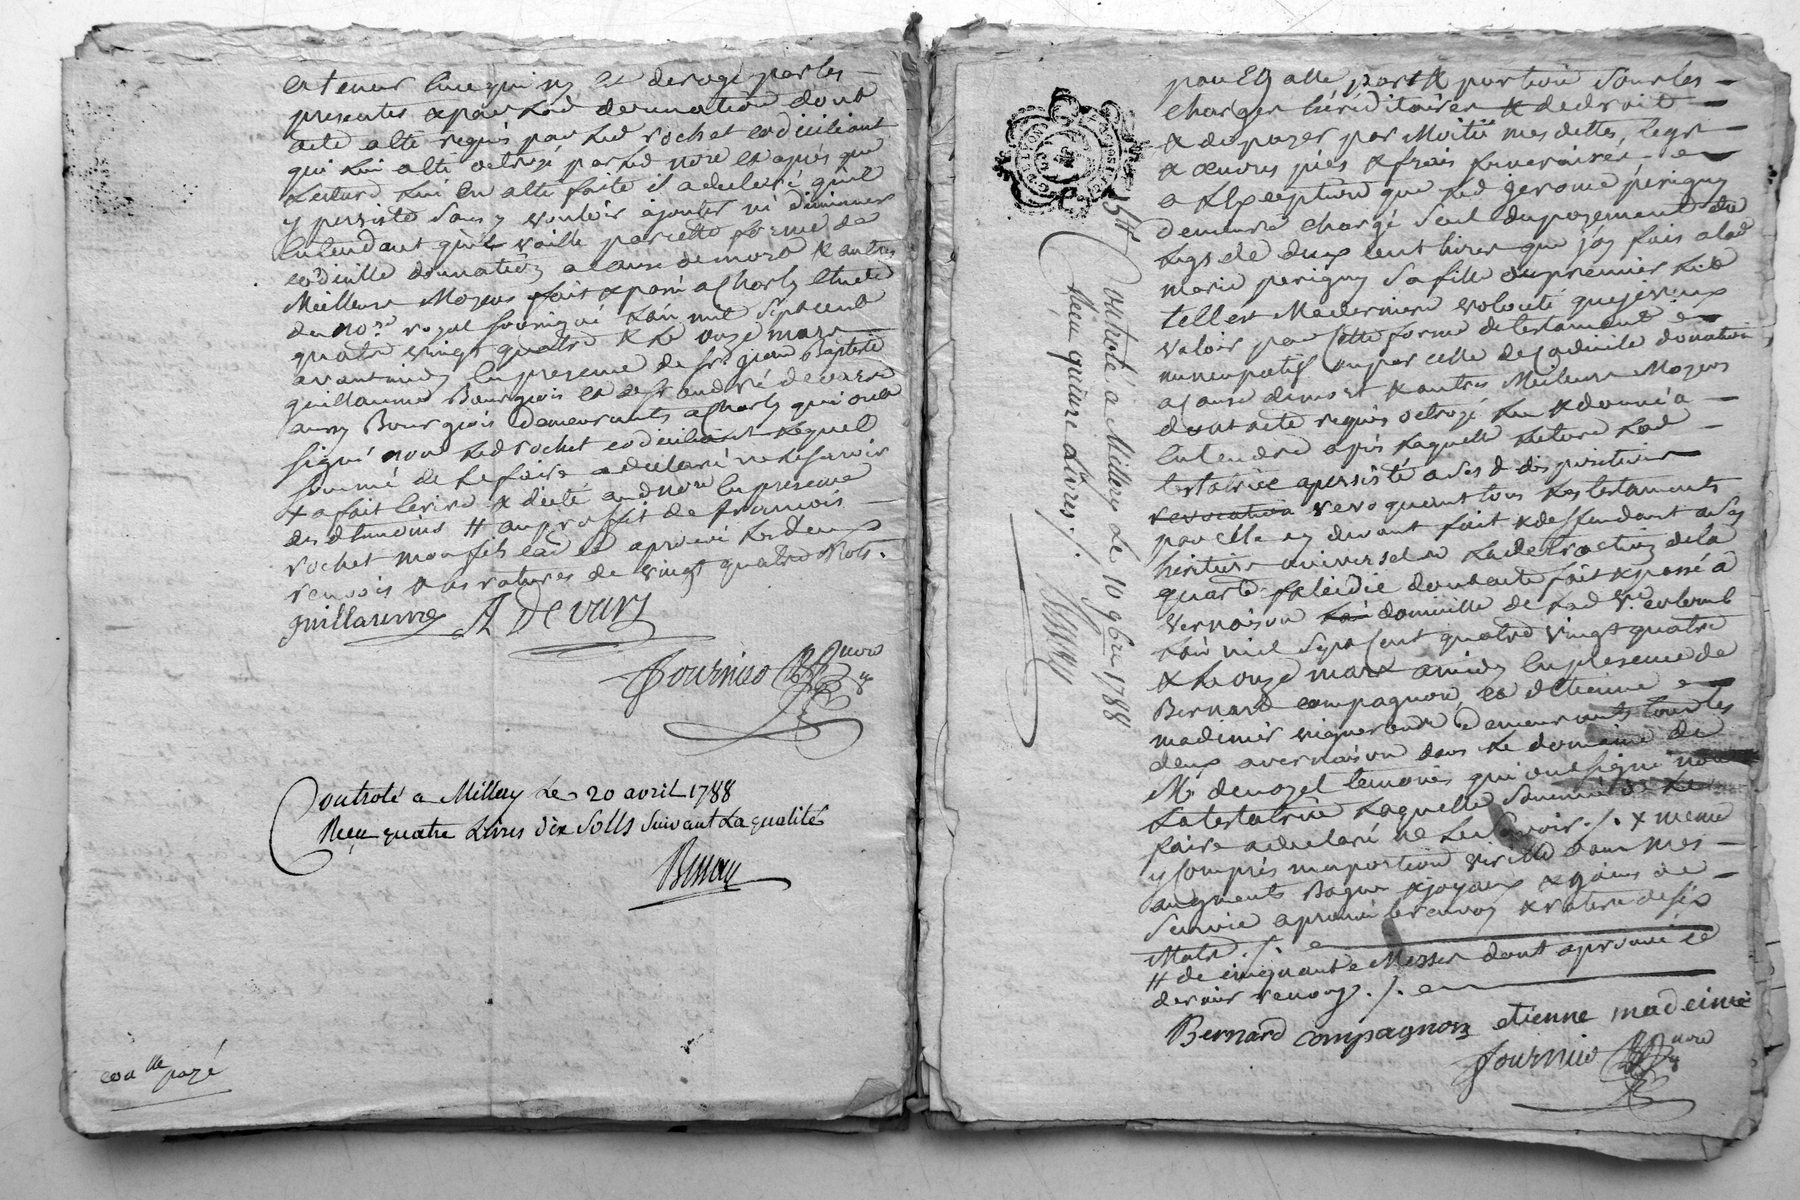 et teneur luy qui n'y est derogé par les
presentes & par lad donnation dont
acte a eté requis par led rochet codicillant
qui lui a eté octroyé par led no.re et après que
lecture lui en a eté faite il a declaré qu'il
y persiste sans y vouloir ajouter ni diminuer
entendant qu'il vaille par cette forme de
codicille donnation a cause de mort & autres
Meilleurs Moyens fait & passé a Charly etude
du no.re royal soussigné L'an mil sept cent
quatre vingt quatre & le onze mars
avant midy en presence de sr jean Baptiste
guillaume Bourgeois et de sr andré devars
aussy Bourgeois demeurants a Charly qui ont
signé non led rochet codicillant lequel
sommé de le faire a declaré ne le savoir
& a fait ecrire & dicté aud no.re en presence
des d temoins # au proffit de francois
rochet mon fils cadet aprouvé les deux
renvois & les ratures de vingt quatre Mots.
guillaume A Devars
fournier no.re
Controlé a Millery Le 20 avril 1788
Reçu quatre Livres dix sols suivant la qualité
coll.e payé
par Egalle part & portion sous les
charges héréditaires & de droit
& de payer par Moitié mes dettes, legs
& œuvres pies & frais funeraires
a l'Exception que led jerome perigny
demeure chargé seul du payement du
legs de deux cent livres que j'ay fais a lad
marie perigny sa fille du premier lit
telle est Ma derniere volonté que je veux
valoir par cette forme de testament
nuncupatif ou par celle de codicile donation
a cause de mort & autres Meilleurs Moyens
dont acte requis octroyé Lu & donné a
Entendre après laquelle lecture lad
testatrice a persisté a ses d dispositions
revocation revoquant tous les testaments
par elle cy devant fait & deffendant a ses
héritiers universels la detraction de la
quarte falcidie dont acte fait & passé a
vernaison domicille de lad
L'an mil sept Cent quatre vingt quatre
& le onze mars a midy En presence de
Bernard compagnon et d'Etienne
madinier vigneron demeurants tous les
deux a vernaison dans le domaine de
Mr denozet temoins qui ont signé non
La testatrice Laquelle sommée de le
faire a declaré ne le savoir ./. & meme
y compris ma portion virille dans mes
augments Bagues & joyaux & gains de
survie aprouvé le renvoy & rature de six
Mots ./.
# de cinquante Messes dont aprouvé ce
dernier renvoy ./.
Bernard compagnon etienne madeinié
fournier no.re
Controlé a Millery Le 10 9bre 1788
Reçu quinze Livres ./.
15#